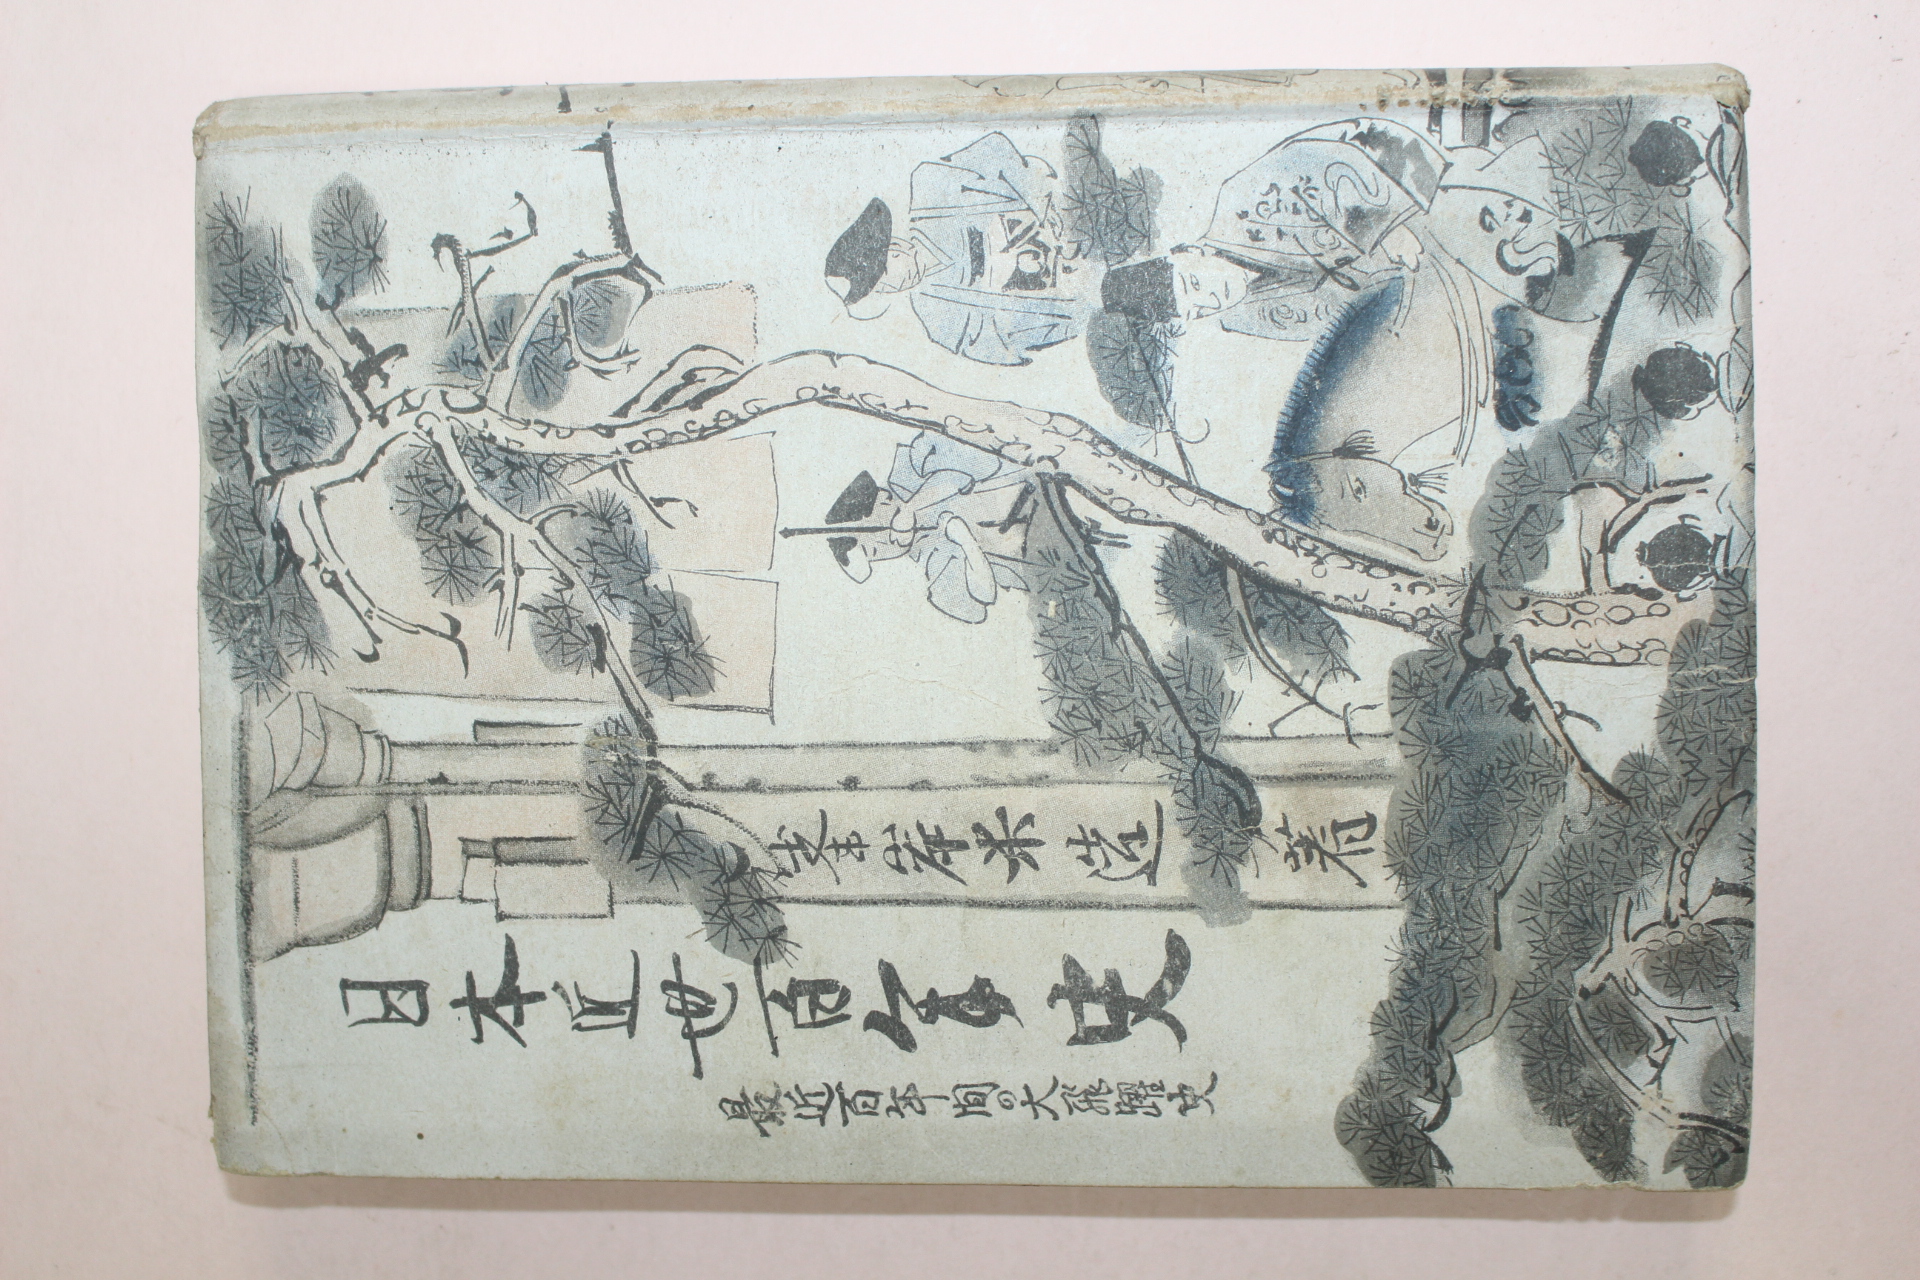 峯岸米造 著
日本近世百年史
最近百年間の大飛躍史